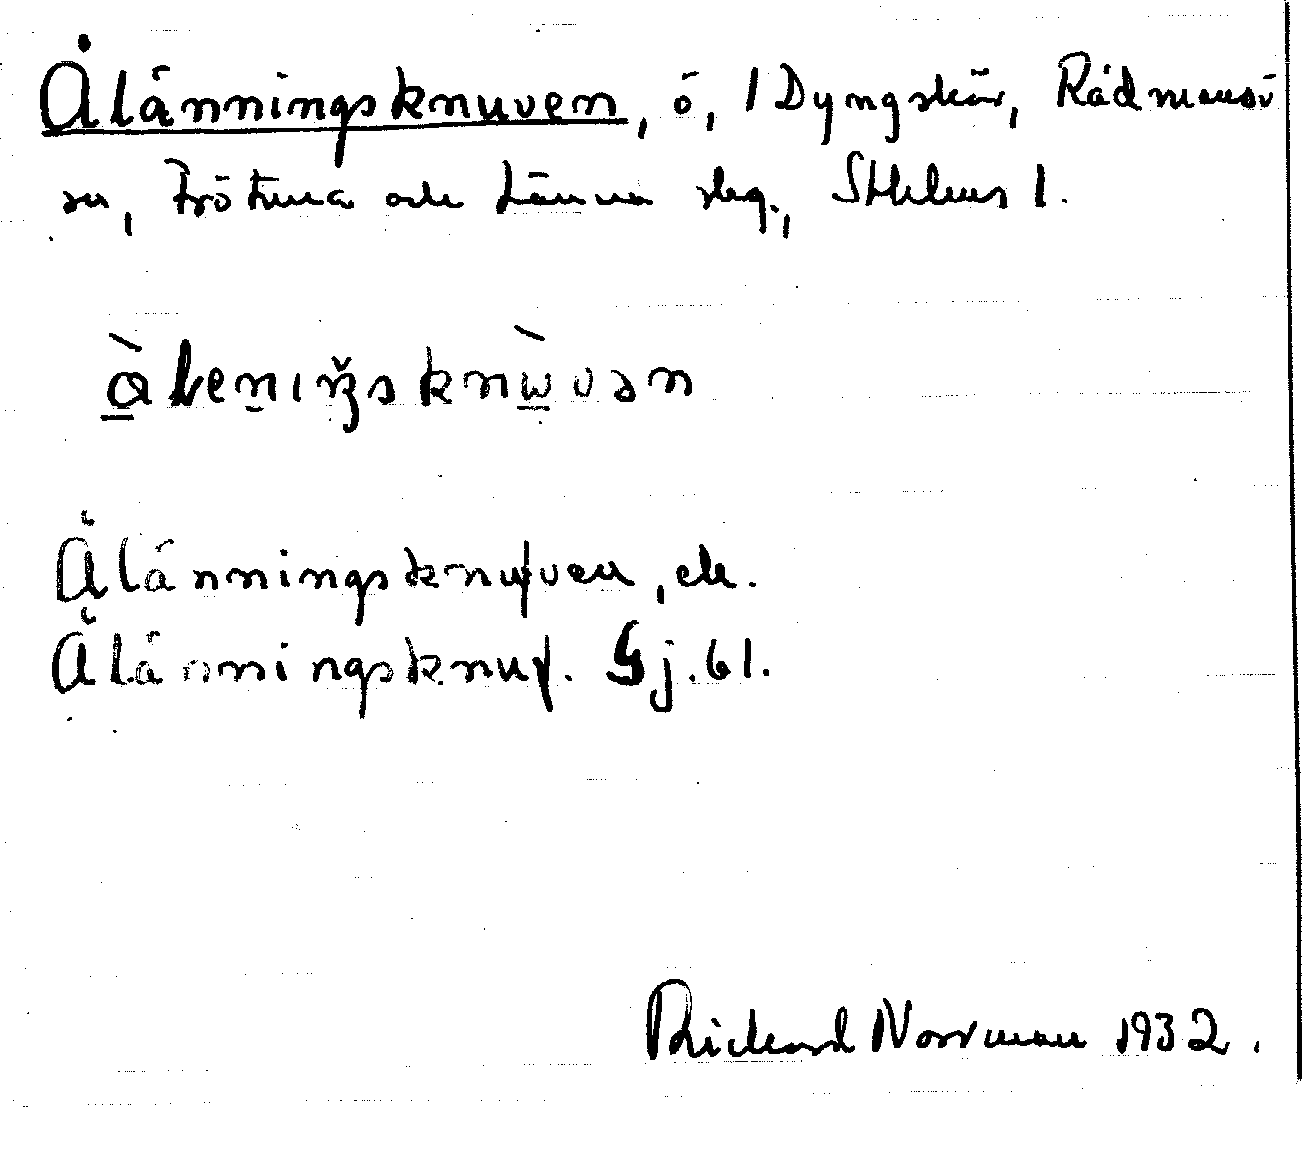 Ålänningsknuven, ö, 1 Dyngskär, Rådmansö
sn, Frötuna och Länna skg., Sthlms l.
Ålänningsknufven, ek.
Ålänningsknuf. Gj. 61.
Rickard Norrman 1932.